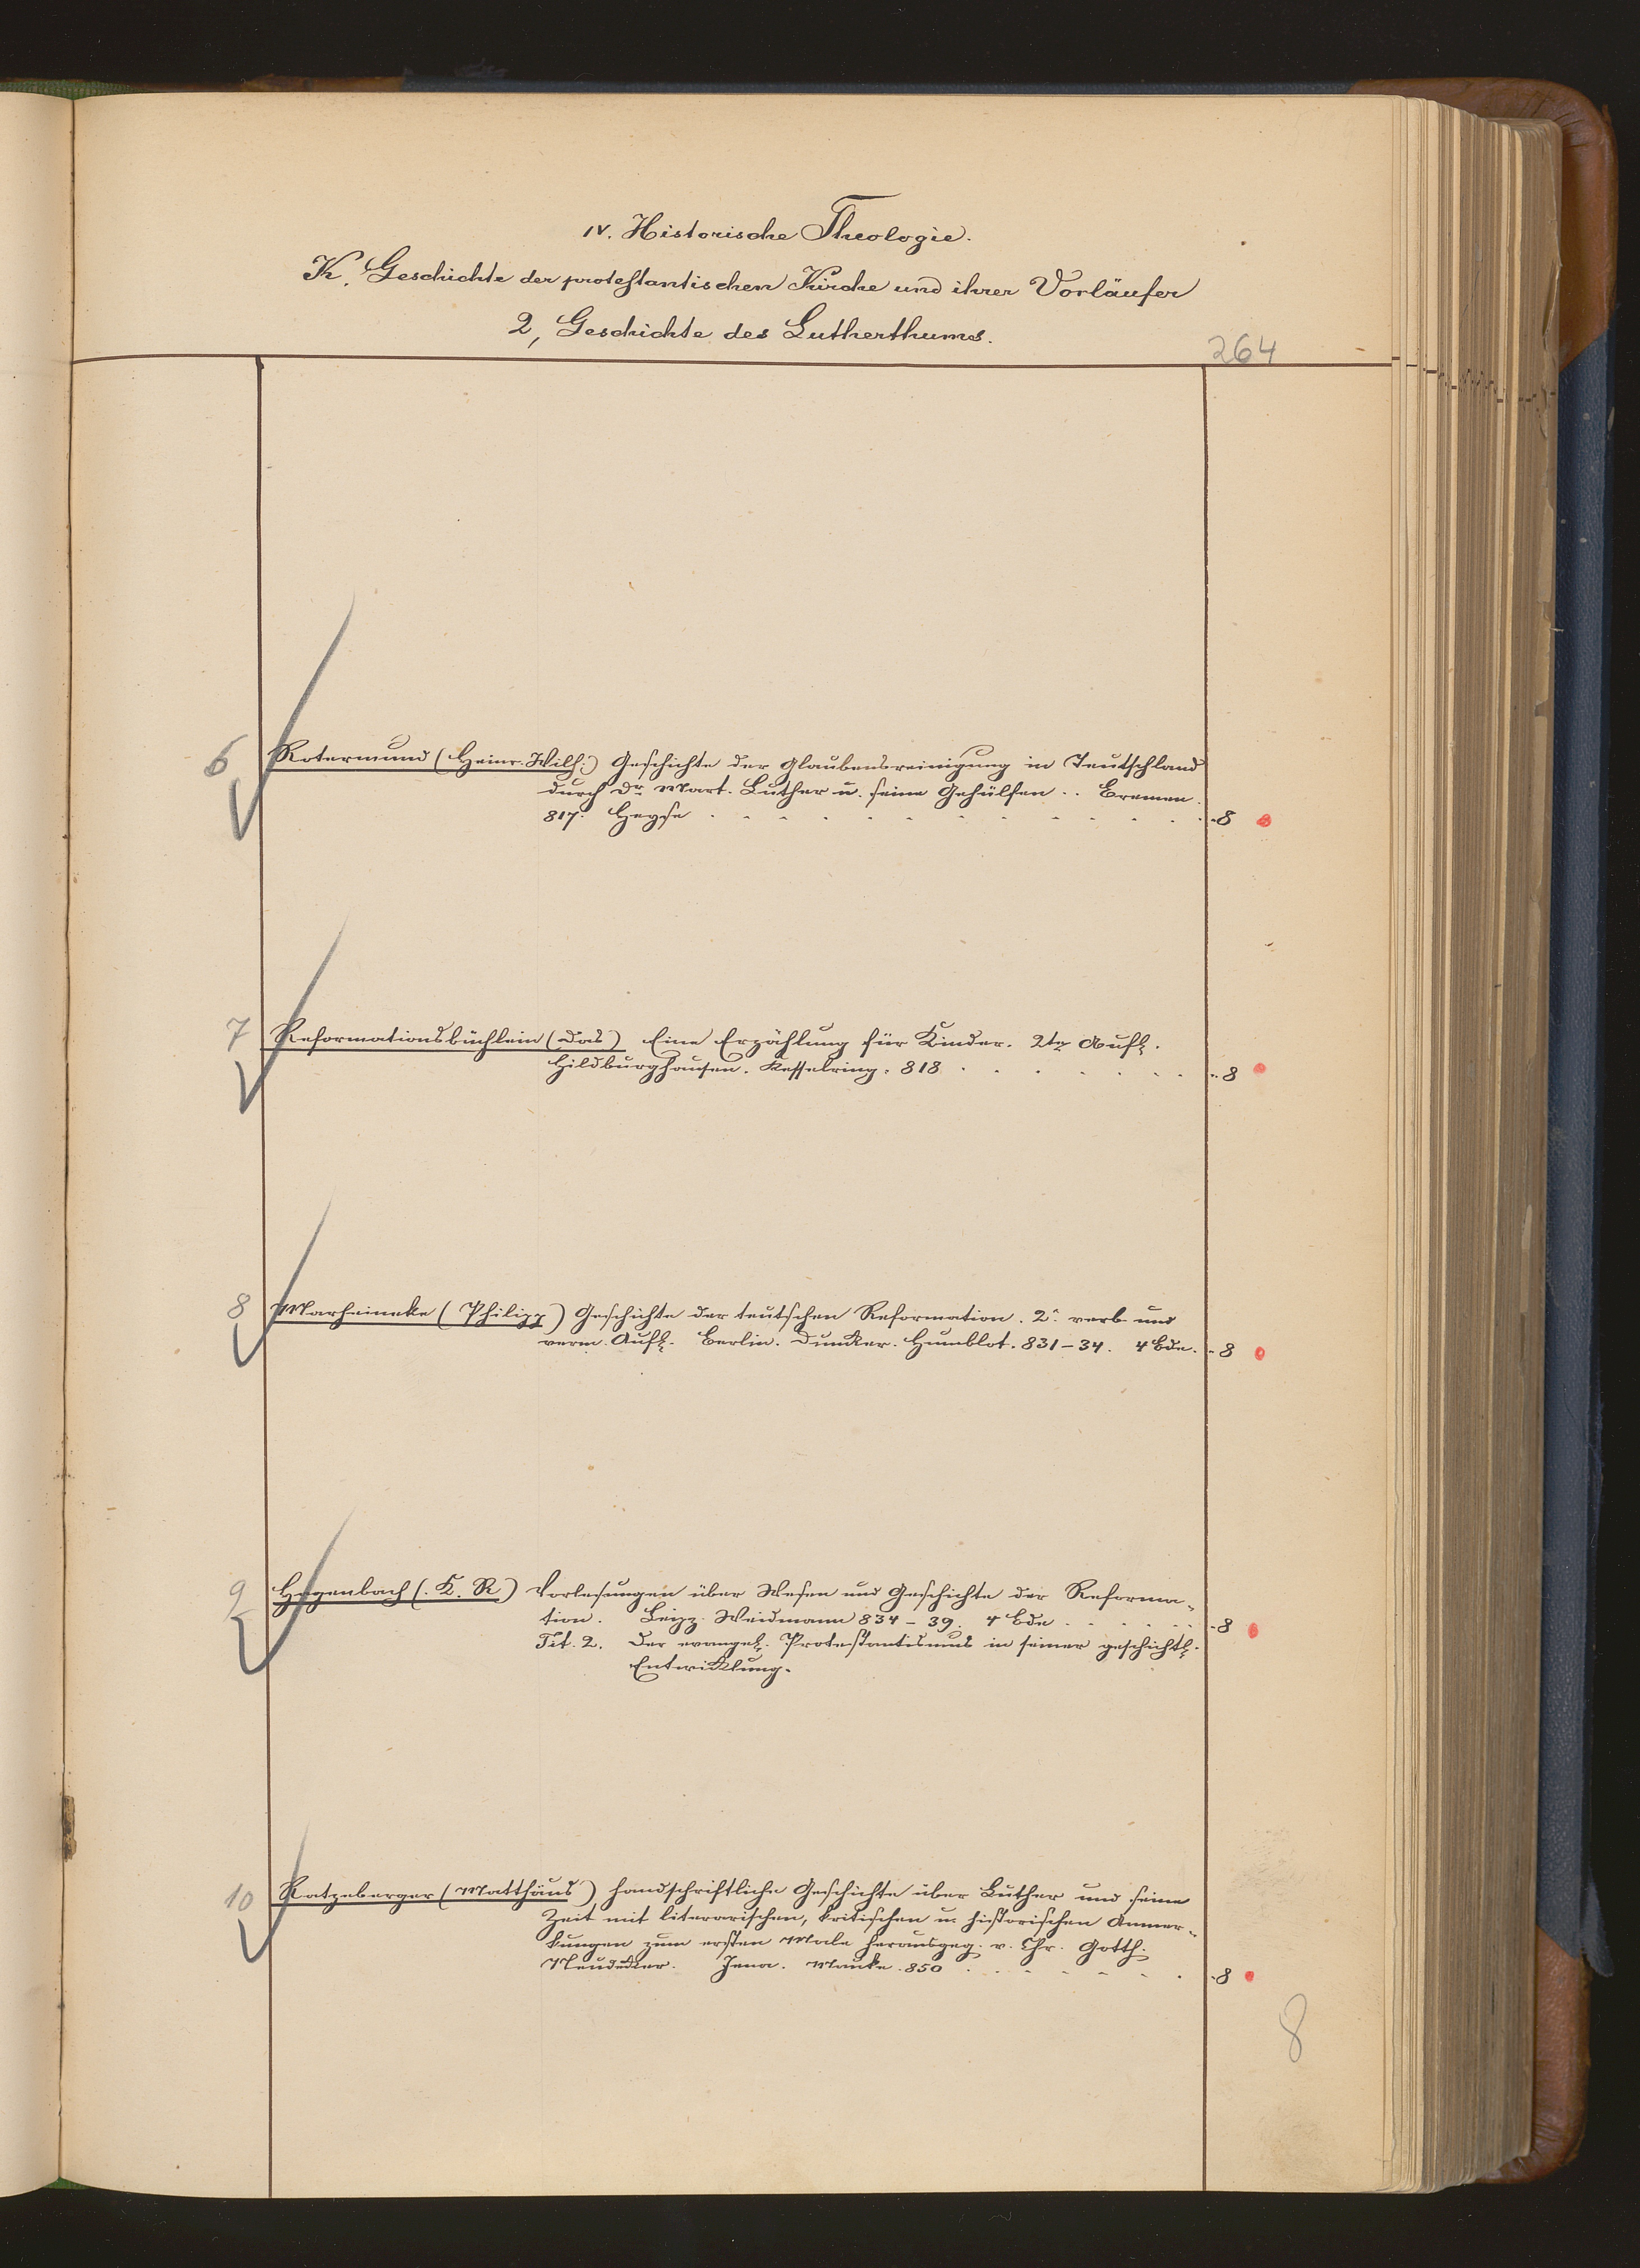 IV. Historische Theologie.
K. Geschichte der protestantischen Kirche und ihrer Vorläufer
2, Geschichte des Lutherthums.
264
6 Rotermund (Heinr. Wilh.) Geschichte der Glaubensreinigung in Teutschland
durch Dr. Mart. Luther u. seine Gehülfen .. Bremen.
817. Heyse . . . . . . . . . . . . . 8
7 Reformationsbüchlein (das) Eine Erzählung für Kinder. 2te Aufl.
Hildburghausen. Kesselring. 818 . . . . . . . . . 8
8 Marheineke (Philipp) Geschichte der teutschen Reformation. 2. verb. und
verm. Aufl. Berlin. Dunker. Humblot. 831-34. 4 Bde. . . 8
9 Hagenbach (K. R.) Vorlesungen über Wesen und Geschichte der Reforma-
tion. Leipz. Weidmann 834-39. 4 Bde . . . . . . 8
Tit. 2. Der evangel. Protestantismus in seiner geschichtl.
Entwicklung.
10 Ratzeberger (Matthäus) handschriftliche Geschichte über Luther und seine
Zeit mit literarischen, kritischen u. historischen Anmer-
kungen zum ersten Male herausgeg. v. Chr. Gotth.
Neudecker. Jena. Mauke. 850 . . . . . . . . 8
8